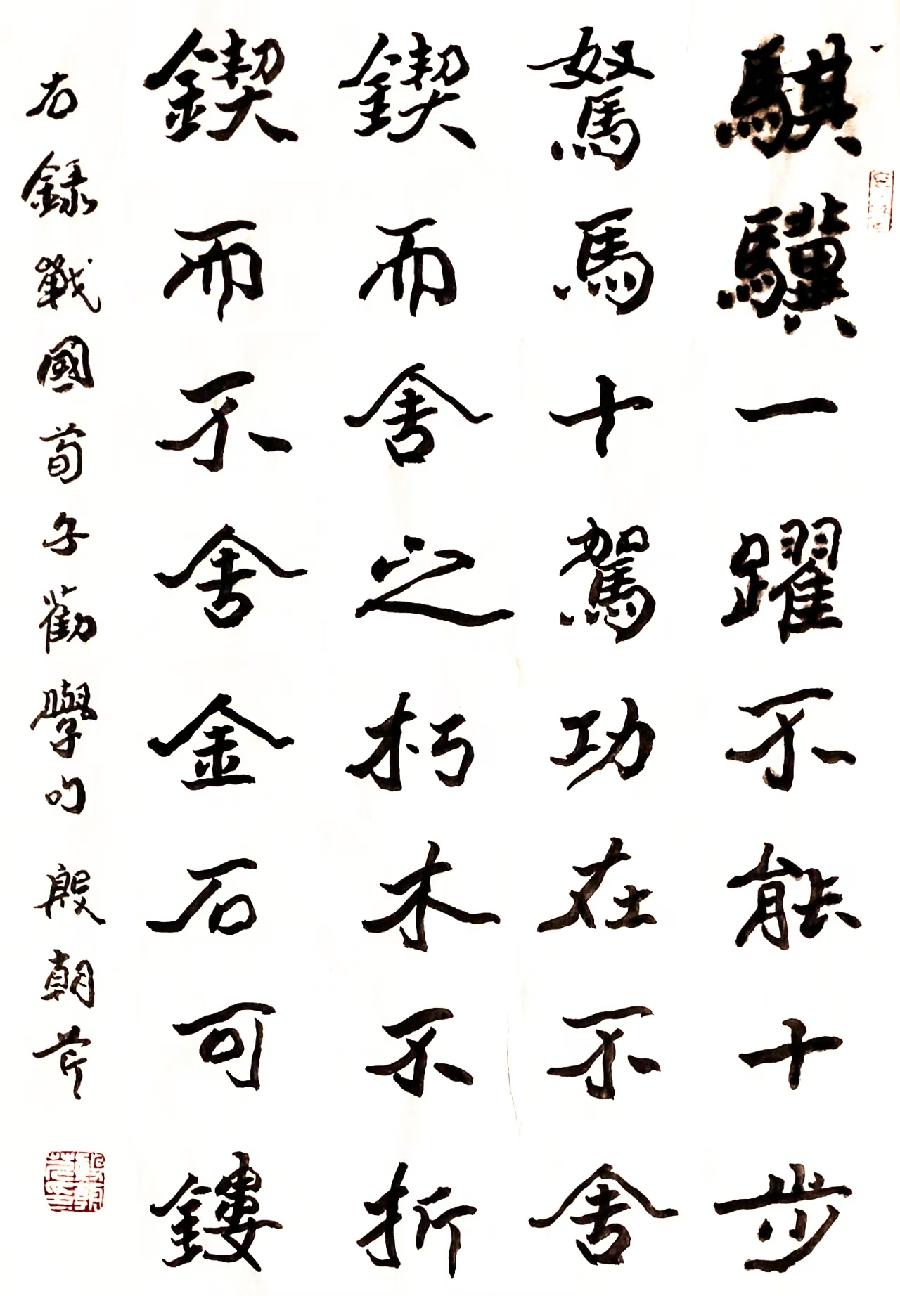 騏驥一躍不能十步
駑馬十駕功在不舍
鍥而舍之朽木不折
鍥而不舍金石可鏤
右錄戰國荀子勸學句 殷朝芹